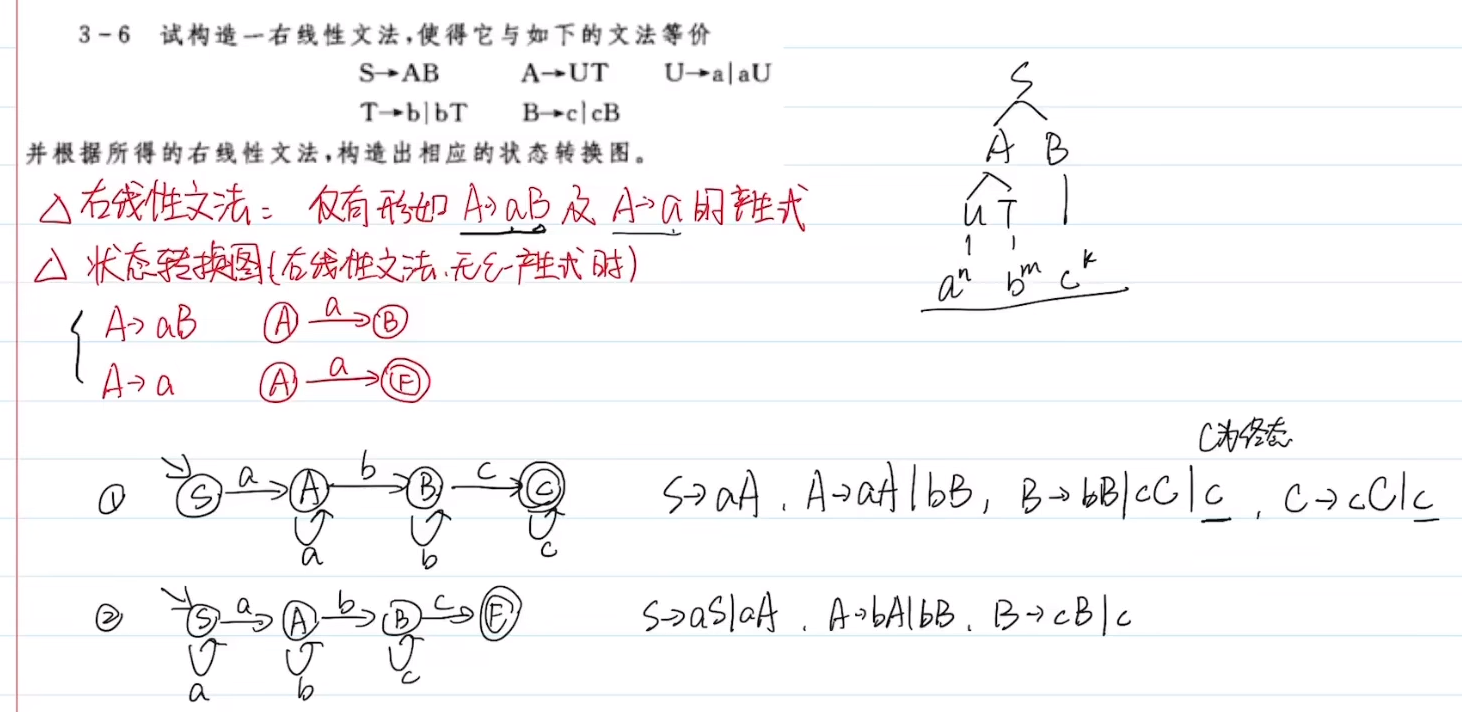 3-6 试构造一右线性文法,使得它与如下的文法等价
S→AB A→UT U→a|aU
T→b|bT B→c|cB
并根据所得的右线性文法,构造出相应的状态转换图。
△ 右线性文法: 仅有形如 A→aB 及 A→a 的产生式
△ 状态转换图(右线性文法、无ε-产生式时)
A→aB A a B
A→a A a F
S
A B
U T
aⁿ bᵐ cᵏ
C为终态
① S a A b B c C S→aA, A→aA|bB, B→bB|cC|c, C→cC|c
a b c
② S a A b B c F S→aS|aA, A→bA|bB, B→cB|c
a b c